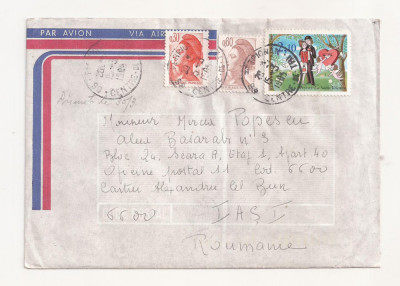 PAR AVION VIA AIR
0,50
0,60
PERPIGNAN
Monsieur Mircea Popescu
Aleea Basarabi n°3
Bloc 24, Scara A, Etaj 1, Apart 40
Oficiul postal 11 Cod 6600
Cartier Alexandru cel Bun
6600 IAŞI
Roumanie